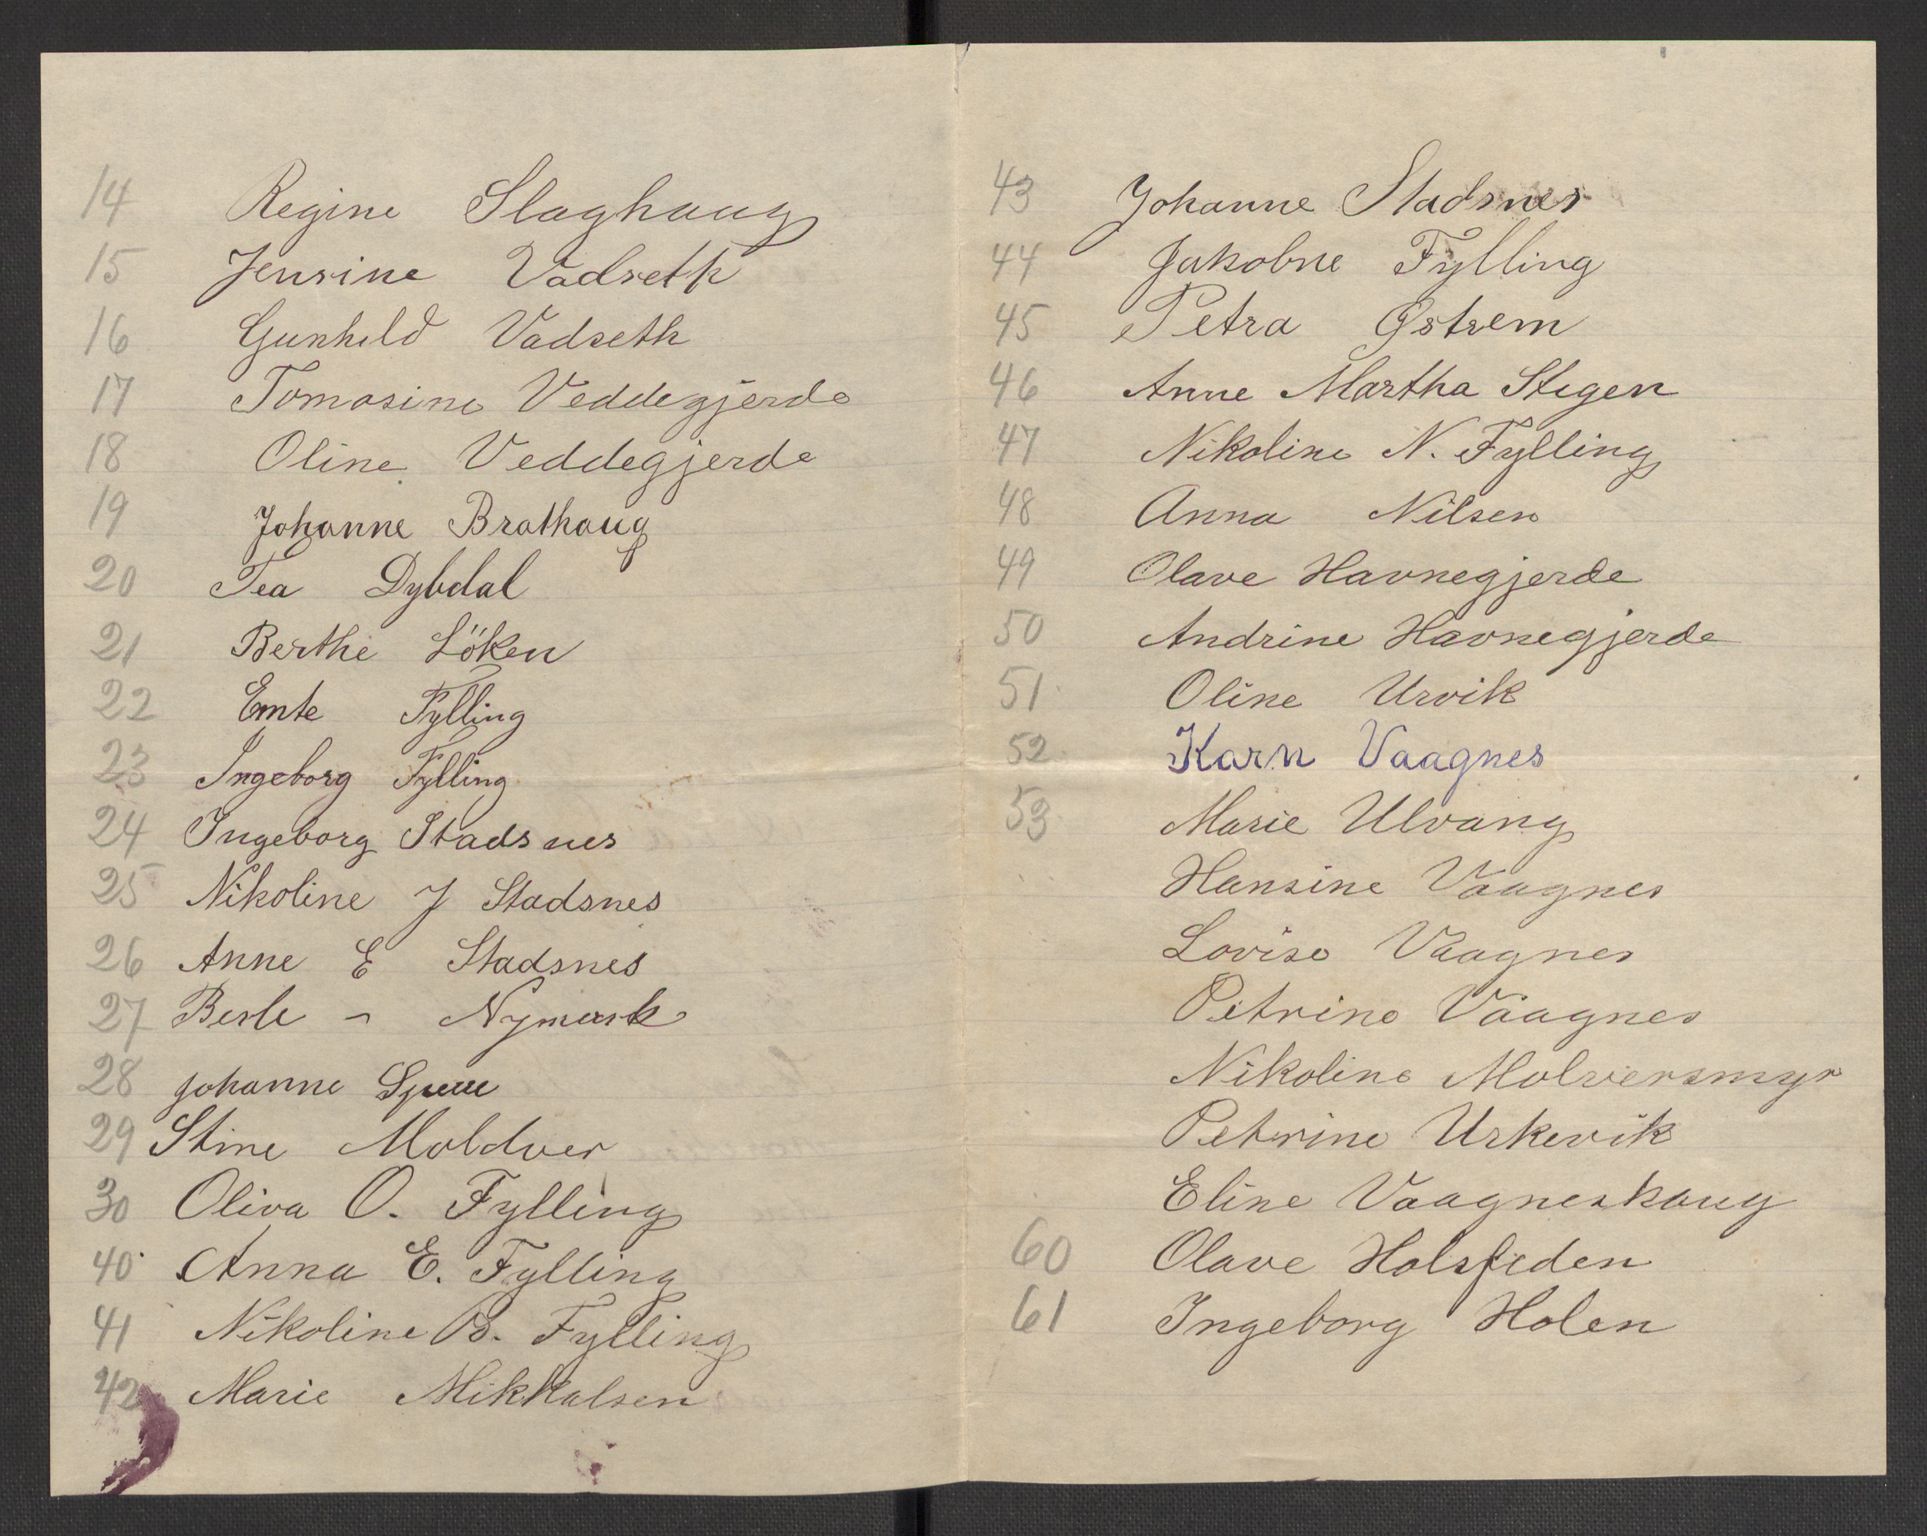 14 Regine Slaghaug
15 Jensine Vadseth
16 Gunhild Vadseth
17 Tomasine Veddegjerde
18 Oline Veddegjerde
19 Johanne Brathaug
20 Tea Dybdal
21 Berthe Löken
22 Emte Fylling
23 Ingeborg Fylling
24 Ingeborg Stadsnes
25 Nikoline J Stadsnes
26 Anne E Stadsnes
27 Berle - Nymark
28 Johanne
29 Stine Moldver
30 Oliva O. Fylling
40 Anna E. Fylling
41 Nikoline B. Fylling
42 Marie Mikkalsen
43 Johanne Stadsnes
44 Jakobne Fylling
45 Petra Østrem
46 Anne Martha Stegen
47 Nikoline N. Fylling
48 Anna Nilsen
49 Olave Havnegjerde
50 Andrine Havnegjerde
51 Oline Urvik
52 Karn Vaagnes
53 Marie Ulvang
Hansine Vaagnes
Lovise Vaagnes
Petrine Vaagnes
Nikoline Molversmyr
Petrine Urkevik
Eline Vaagneshaug
60 Olave Holsfeden
61 Ingeborg Holen